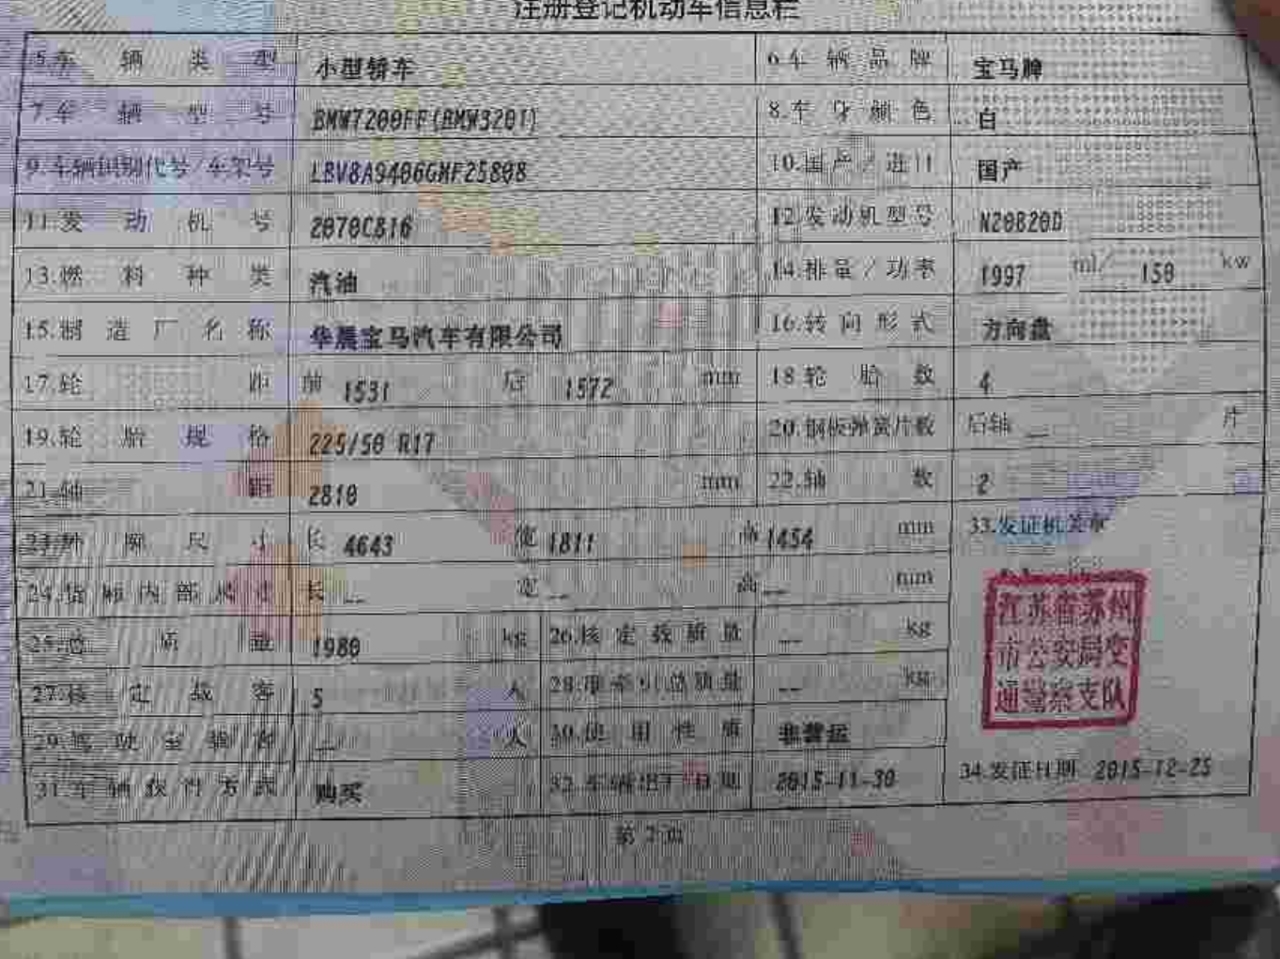 注册登记机动车信息栏
5.车辆类型 小型轿车 6.车辆品牌 宝马牌
7.车辆型号 BMW7200FF(BMW320I) 8.车身颜色 白
9.车辆识别代号/车架号 LBV8A9406GMF25808 10.国产/进口 国产
11.发动机号 2070C816 12.发动机型号 N20B20D
13.燃料种类 汽油 14.排量/功率 1997 ml/ 150 kw
15.制造厂名称 华晨宝马汽车有限公司 16.转向形式 方向盘
17.轮距 前 1531 后 1572 mm 18.轮胎数 4
19.轮胎规格 225/50 R17 20.钢板弹簧片数 后轴 -- 片
21.轴距 2810 mm 22.轴数 2
23.外廓尺寸 长 4643 宽 1811 高 1454 mm 33.发证机关章
24.货厢内部尺寸 长 -- 宽 -- 高 -- mm
江苏省苏州
市公安局交
通警察支队
25.总质量 1980 kg 26.核定载质量 -- kg
27.核定载客 5 人 28.准牵引总质量 -- kg
29.驾驶室载客 -- 人 30.使用性质 非营运
31.车辆获得方式 购买 32.车辆出厂日期 2015-11-30 34.发证日期 2015-12-25
第 2 页